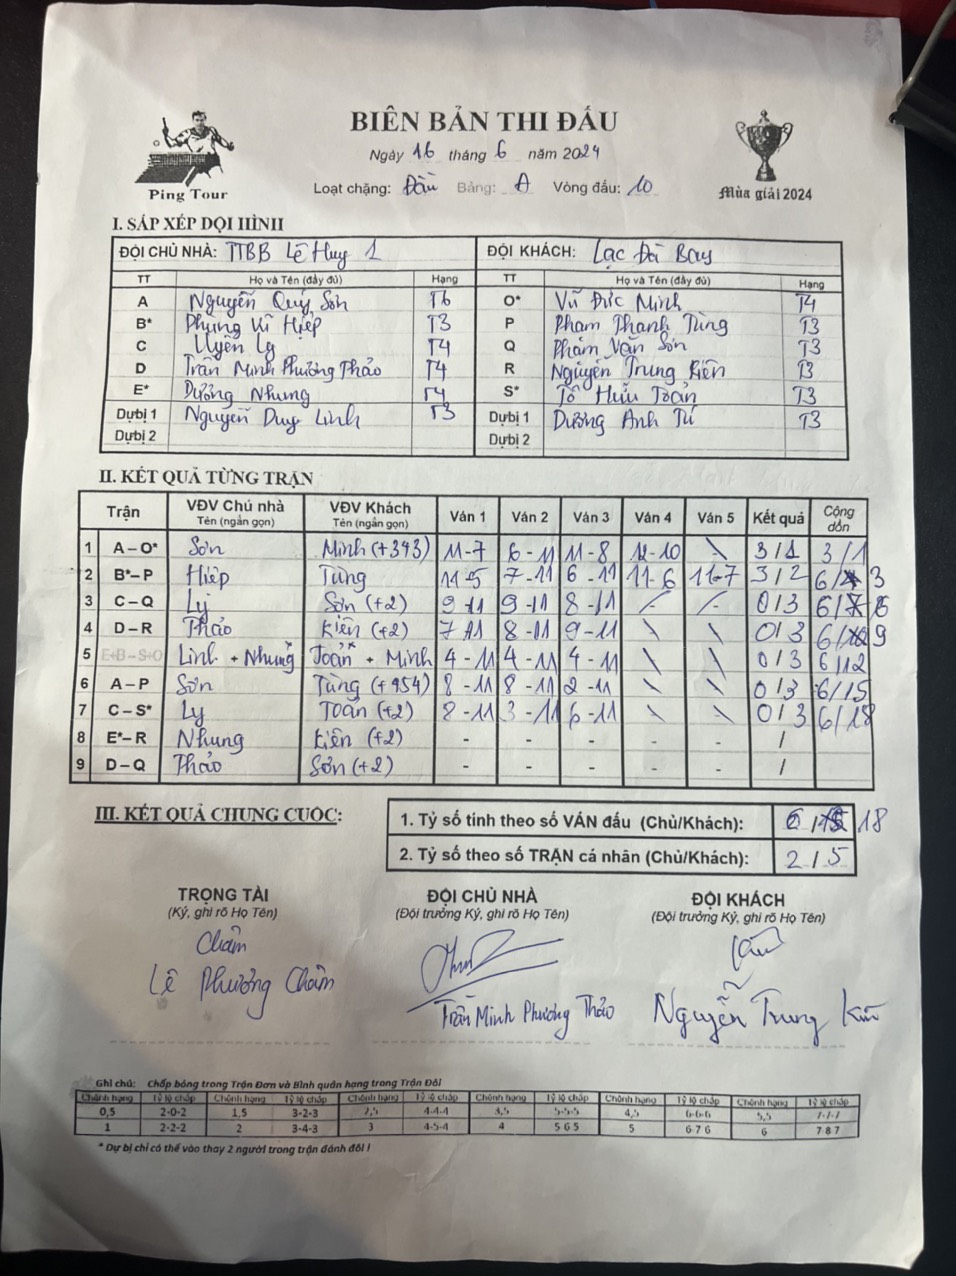 BIÊN BẢN THI ĐẤU
Ngày 16 tháng 6 năm 2024
Ping Tour
Loạt chặng: Đầu Bảng: A Vòng đấu: 10
Mùa giải 2024
I. SẮP XẾP ĐỘI HÌNH
ĐỘI CHỦ NHÀ: TTBB Lê Huy 1 ĐỘI KHÁCH: Lạc Đà Bay
TT Họ và Tên (đầy đủ) Hạng TT Họ và Tên (đầy đủ) Hạng
A Nguyễn Quý Sơn T6 O* Vũ Đức Minh T4
B* Phụng Vĩ Hiệp T3 P Phạm Thanh Tùng T3
C Uyển Ly T4 Q Phạm Văn Sơn T3
D Trần Minh Phương Thảo T4 R Nguyễn Trung Kiên T3
E* Dương Nhung T4 S* Tô Hữu Toản T3
Dự bị 1 Nguyễn Duy Linh T3 Dự bị 1 Dương Anh Tú T3
Dự bị 2 Dự bị 2
II. KẾT QUẢ TỪNG TRẬN
Trận VĐV Chủ nhà Tên (ngắn gọn) VĐV Khách Tên (ngắn gọn) Ván 1 Ván 2 Ván 3 Ván 4 Ván 5 Kết quả Cộng dồn
1 A – O* Sơn Minh (+343) 11-7 6-11 11-8 12-10 \ 3/1 3/1
2 B* – P Hiệp Tùng 11-5 7-11 6-11 11-6 11-7 3/2 6/3
3 C – Q Ly Sơn (+2) 9-11 9-11 8-11 / / 0/3 6/6
4 D – R Thảo Kiên (+2) 7-11 8-11 9-11 \ \ 0/3 6/9
5 E+B – S+O Linh + Nhung Toản + Minh 4-11 4-11 4-11 \ \ 0/3 6/12
6 A – P Sơn Tùng (+454) 8-11 8-11 2-11 \ \ 0/3 6/15
7 C – S* Ly Toản (+2) 8-11 3-11 6-11 \ \ 0/3 6/18
8 E* – R Nhung Kiên (+2) - - - - - /
9 D – Q Thảo Sơn (+2) - - - - - /
III. KẾT QUẢ CHUNG CUỘC:
1. Tỷ số tính theo số VÁN đấu (Chủ/Khách): 6/18
2. Tỷ số theo số TRẬN cá nhân (Chủ/Khách): 2/5
TRỌNG TÀI ĐỘI CHỦ NHÀ ĐỘI KHÁCH
(Ký, ghi rõ Họ Tên) (Đội trưởng Ký, ghi rõ Họ Tên) (Đội trưởng Ký, ghi rõ Họ Tên)
Châm
Lê Phương Châm Trần Minh Phương Thảo Nguyễn Trung Kiên
Ghi chú: Chấp bóng trong Trận Đơn và Bình quân hạng trong Trận Đôi
Chênh hạng Tỷ lệ chấp Chênh hạng Tỷ lệ chấp Chênh hạng Tỷ lệ chấp Chênh hạng Tỷ lệ chấp Chênh hạng Tỷ lệ chấp Chênh hạng Tỷ lệ chấp
0,5 2-0-2 1,5 3-2-3 2,5 4-4-4 3,5 5-5-5 4,5 6-6-6 5,5 7-7-7
1 2-2-2 2 3-4-3 3 4-5-4 4 5 6 5 5 6 7 6 6 7 8 7
* Dự bị chỉ có thể vào thay 2 người trong trận đánh đôi !